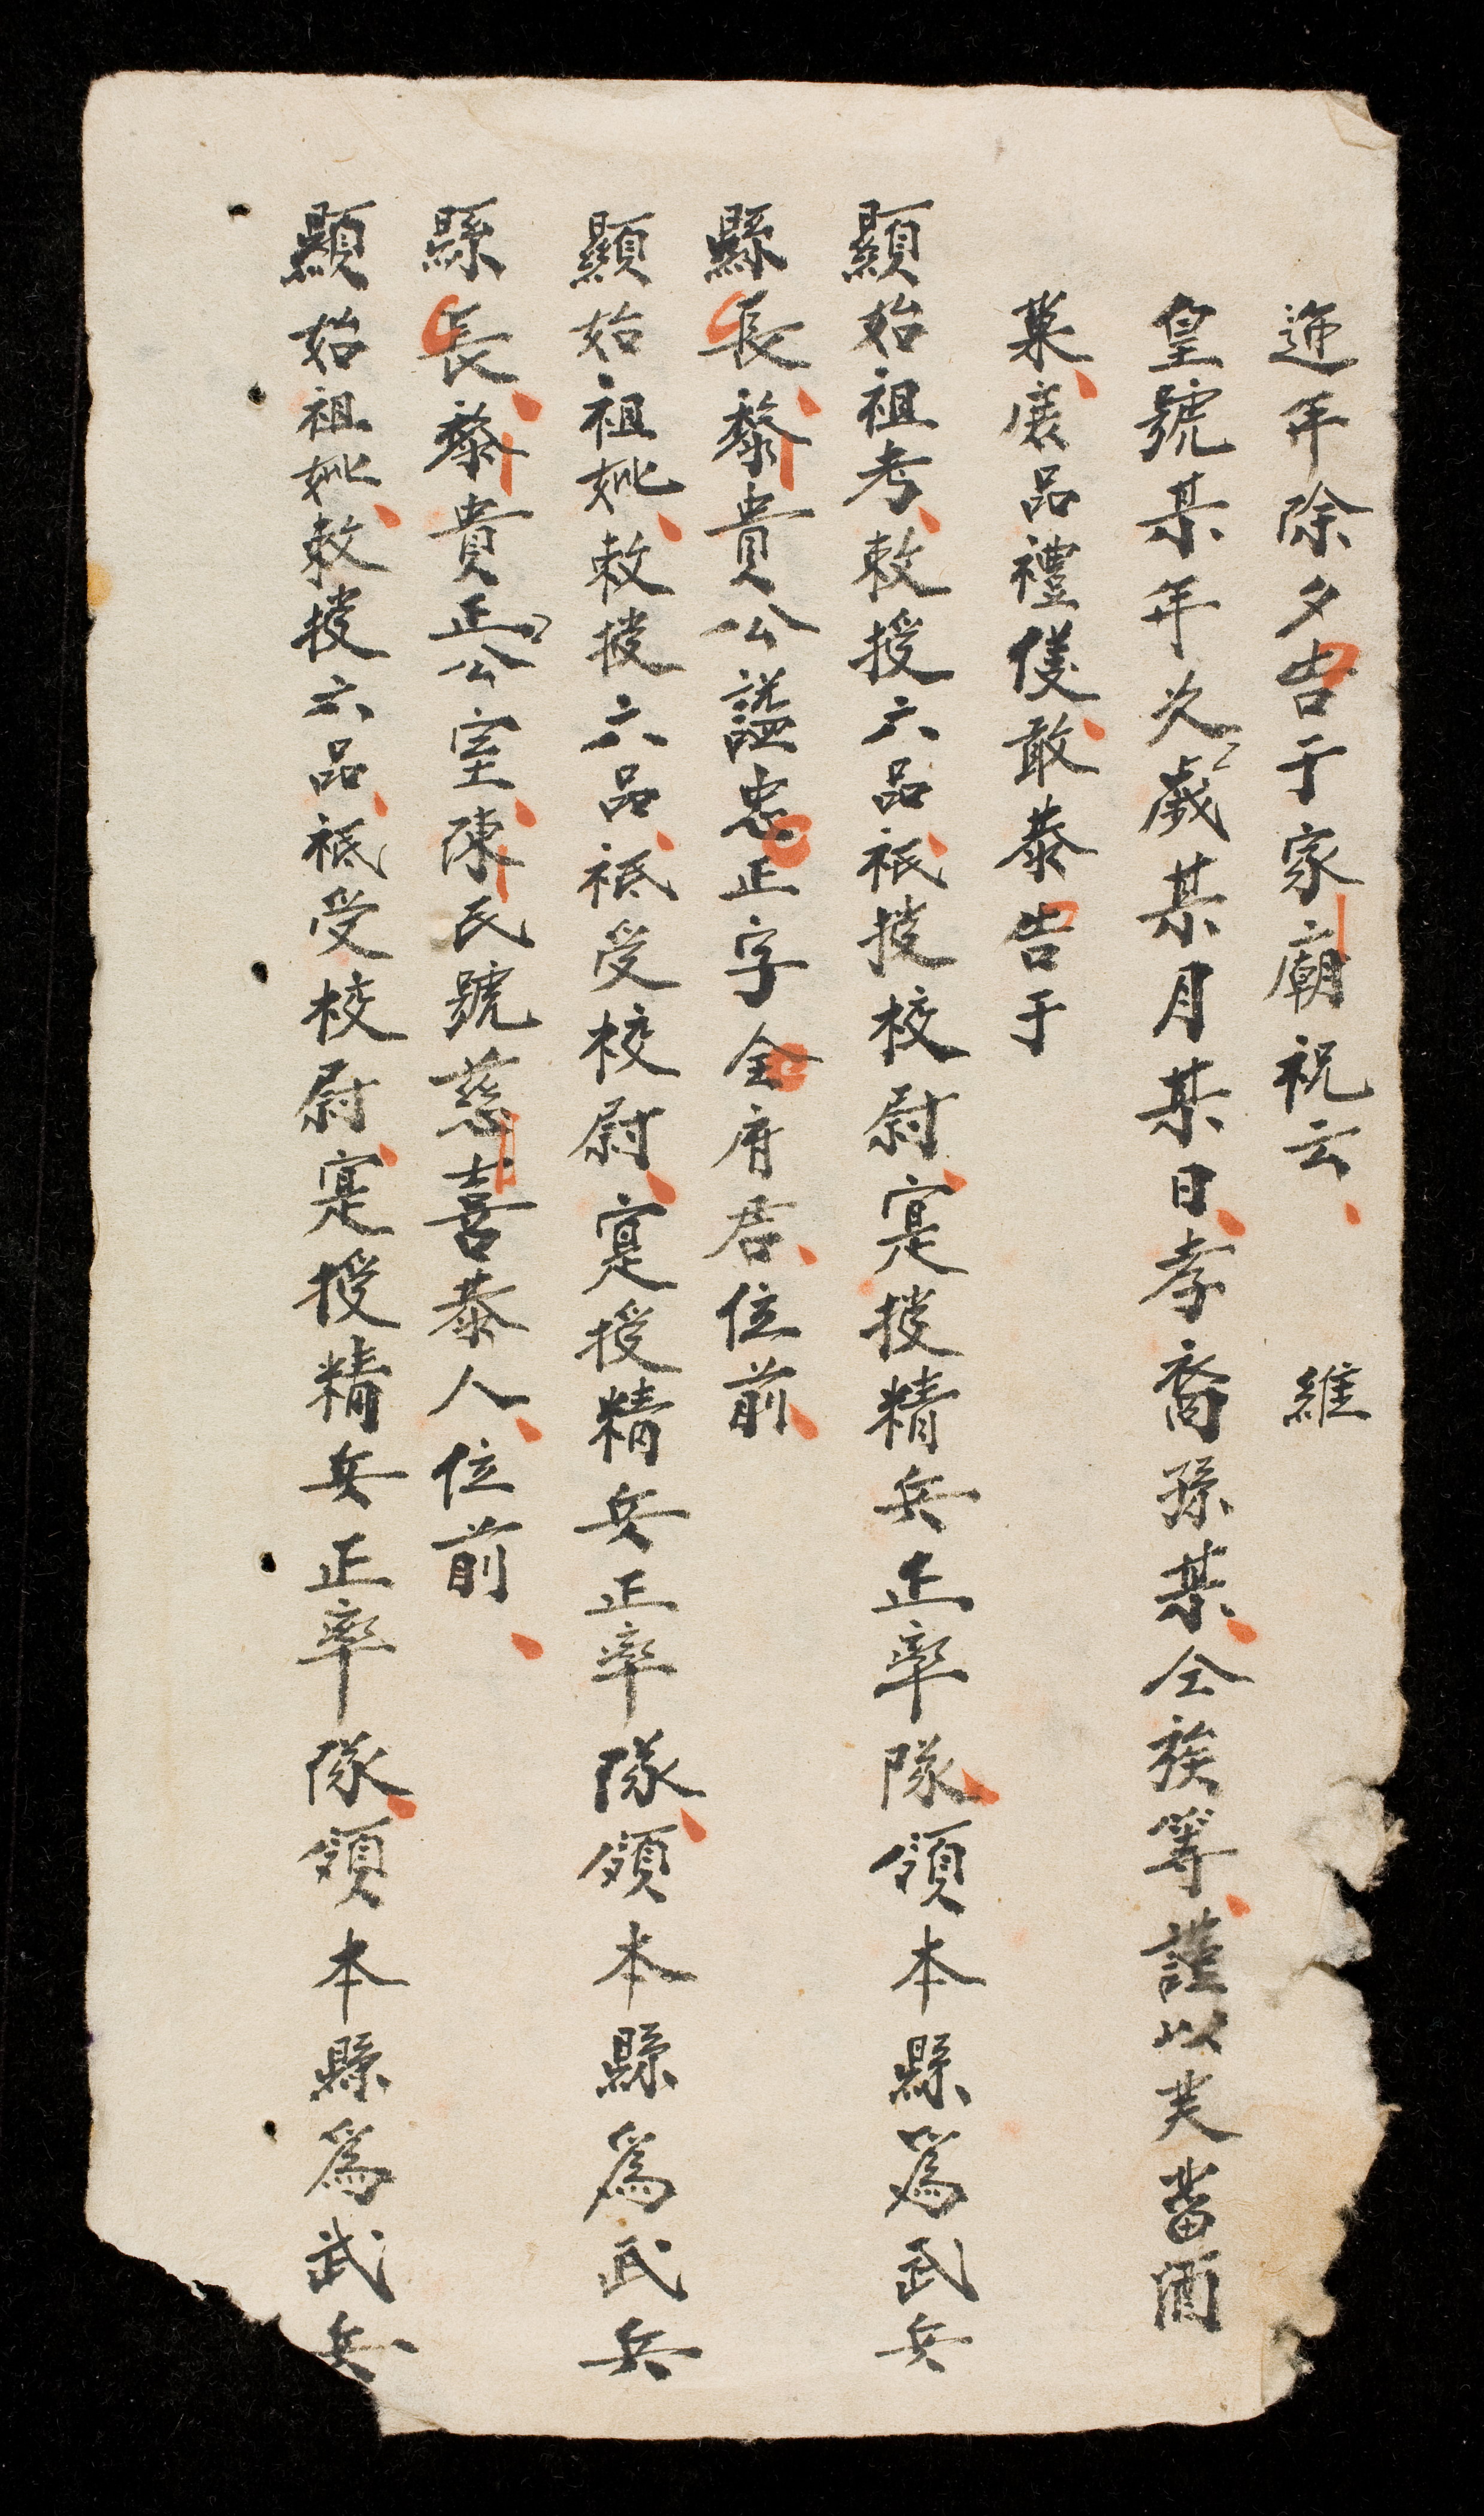 迎年除夕告于家廟祝云 維
皇號某年次歲某月某日孝裔孫某仝族等謹以芙蒥酒
菓庶品禮儀敢恭告于
顯始祖考敕授六品祇授校尉寔授精兵正率隊領本縣為武兵
縣長黎貴公謚忠正字全府君位前
顯始祖妣敕授六品祗受校尉寔授精兵正率隊領本縣為武兵
縣長黎貴正公室陳氏號慈喜恭人位前
顯始祖妣敕授六品祗受校尉寔授精兵正率隊領本縣為武兵